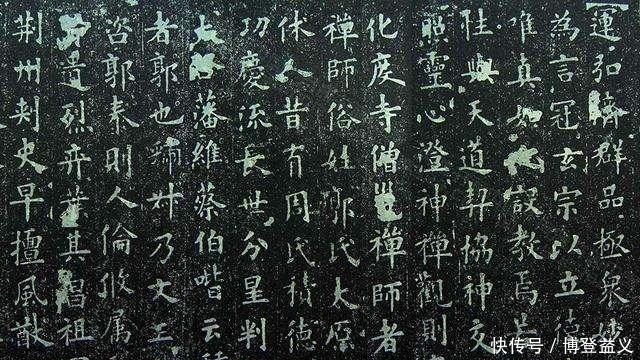 運弘濟群品極衆妙
為言冠玄宗以立德
唯真如之設教焉若
性與天道契協神交
昭靈心澄神禪觀則
化度寺僧邕禪師者
禪師俗姓郭氏太原
休人昔有周氏積德
功慶流長世分星判
大藩維蔡伯喈云
者郭也虢叔乃文王
咨郭泰則人倫攸属
遺烈弈葉其昌祖
荊州刺史早擅風猷
快传号 / 博登益义